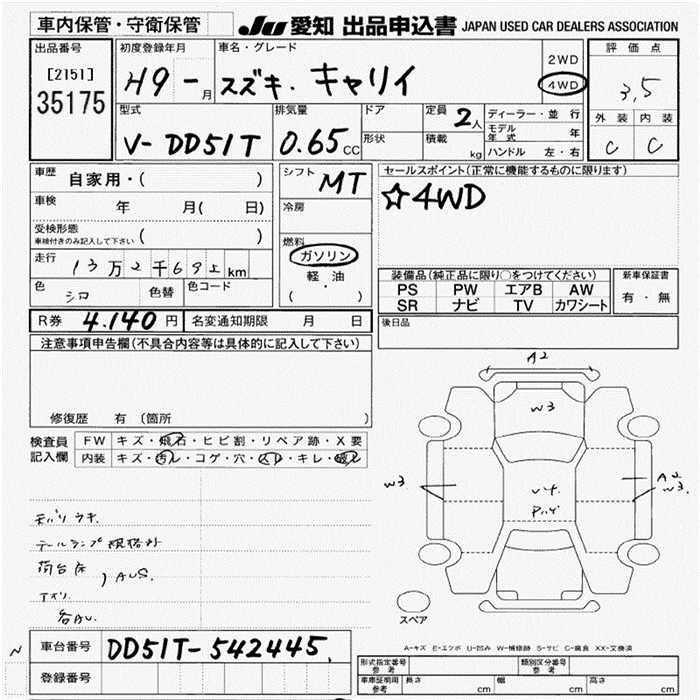 車内保管・守衛保管 JU 愛知 出品申込書 JAPAN USED CAR DEALERS ASSOCIATION
出品番号
[2151]
35175
初度登録年月
H9 - 月
車名・グレード
スズキ. キャリイ
2WD
4WD
評価点
3,5
外装 内装
C C
型式
V- DD51T
排気量
0.65 CC
ドア
形状
定員
2人
積載 kg
ディーラー・並行
モデル年式 年
ハンドル 左・右
車歴 自家用・( )
車検 年 月( 日)
受検形態
車検付きのみ記入して下さい ( )
走行 13万2千69 km
色 シロ 色替 色コード
シフト MT
冷房
燃料
ガソリン
軽・油
( )
セールスポイント(正常に機能するものに限ります)
☆4WD
装備品(純正品に限り○をつけてください)
PS PW エアB AW
SR ナビ TV カワシート
新車保証書
有・無
R券 4.140 円 名変通知期限 月 日
後日品
注意事項申告欄(不具合内容等は具体的に記入して下さい)
修復歴 有 〔箇所
検査員記入欄
FW キズ・飛石・ヒビ割・リペア跡・X要
内装 キズ・汚レ・コゲ・穴・スレ・キレ・破レ
A2
W3
W3
A2
W3.
V4.
モバリ ウキ.
テールランプ
荷台床
各AU.
スペア
A-キズ E-エクボ U-凹み W-補修跡 S-サビ C-腐食 XX-交換済
車台番号 DD51T-542445.
登録番号
形式指定番号 参考
類別区分番号 参考
車庫証明用 参考 長さ cm 幅 cm 高さ cm